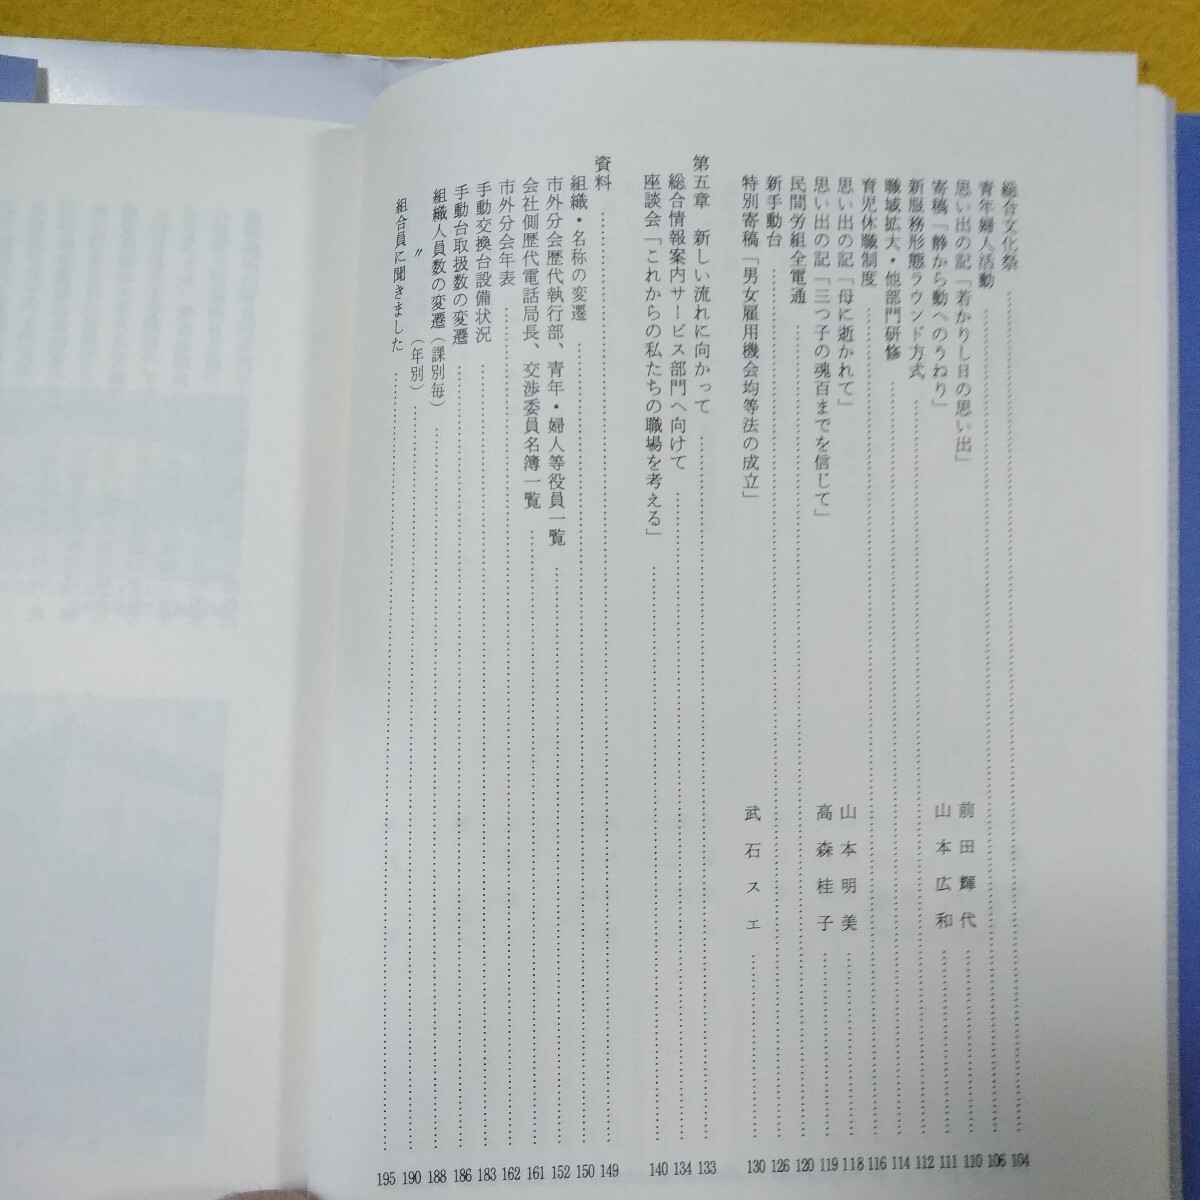 総合文化祭 104
青年婦人活動 106
思い出の記「若かりし日の思い出」 前田輝代 110
寄稿「静から動へのうねり」 山本広和 111
新服務形態ラウンド方式 112
職域拡大・他部門研修 114
育児休職制度 116
思い出の記「母に逝かれて」 山本明美 118
思い出の記「三つ子の魂百までを信じて」 高森桂子 119
民間労組全電通 120
新手動台 126
特別寄稿「男女雇用機会均等法の成立」 武石スエ 130
第五章 新しい流れに向かって 133
総合情報案内サービス部門へ向けて 134
座談会「これからの私たちの職場を考える」 140
資料 149
組織・名称の変遷 150
市外分会歴代執行部、青年・婦人等役員一覧 152
会社側歴代電話局長、交渉委員名簿一覧 161
市外分会年表 162
手動交換台設備状況 183
手動台取扱数の変遷 186
組織人員数の変遷(課別毎) 188
〃 (年別) 190
組合員に聞きました 195